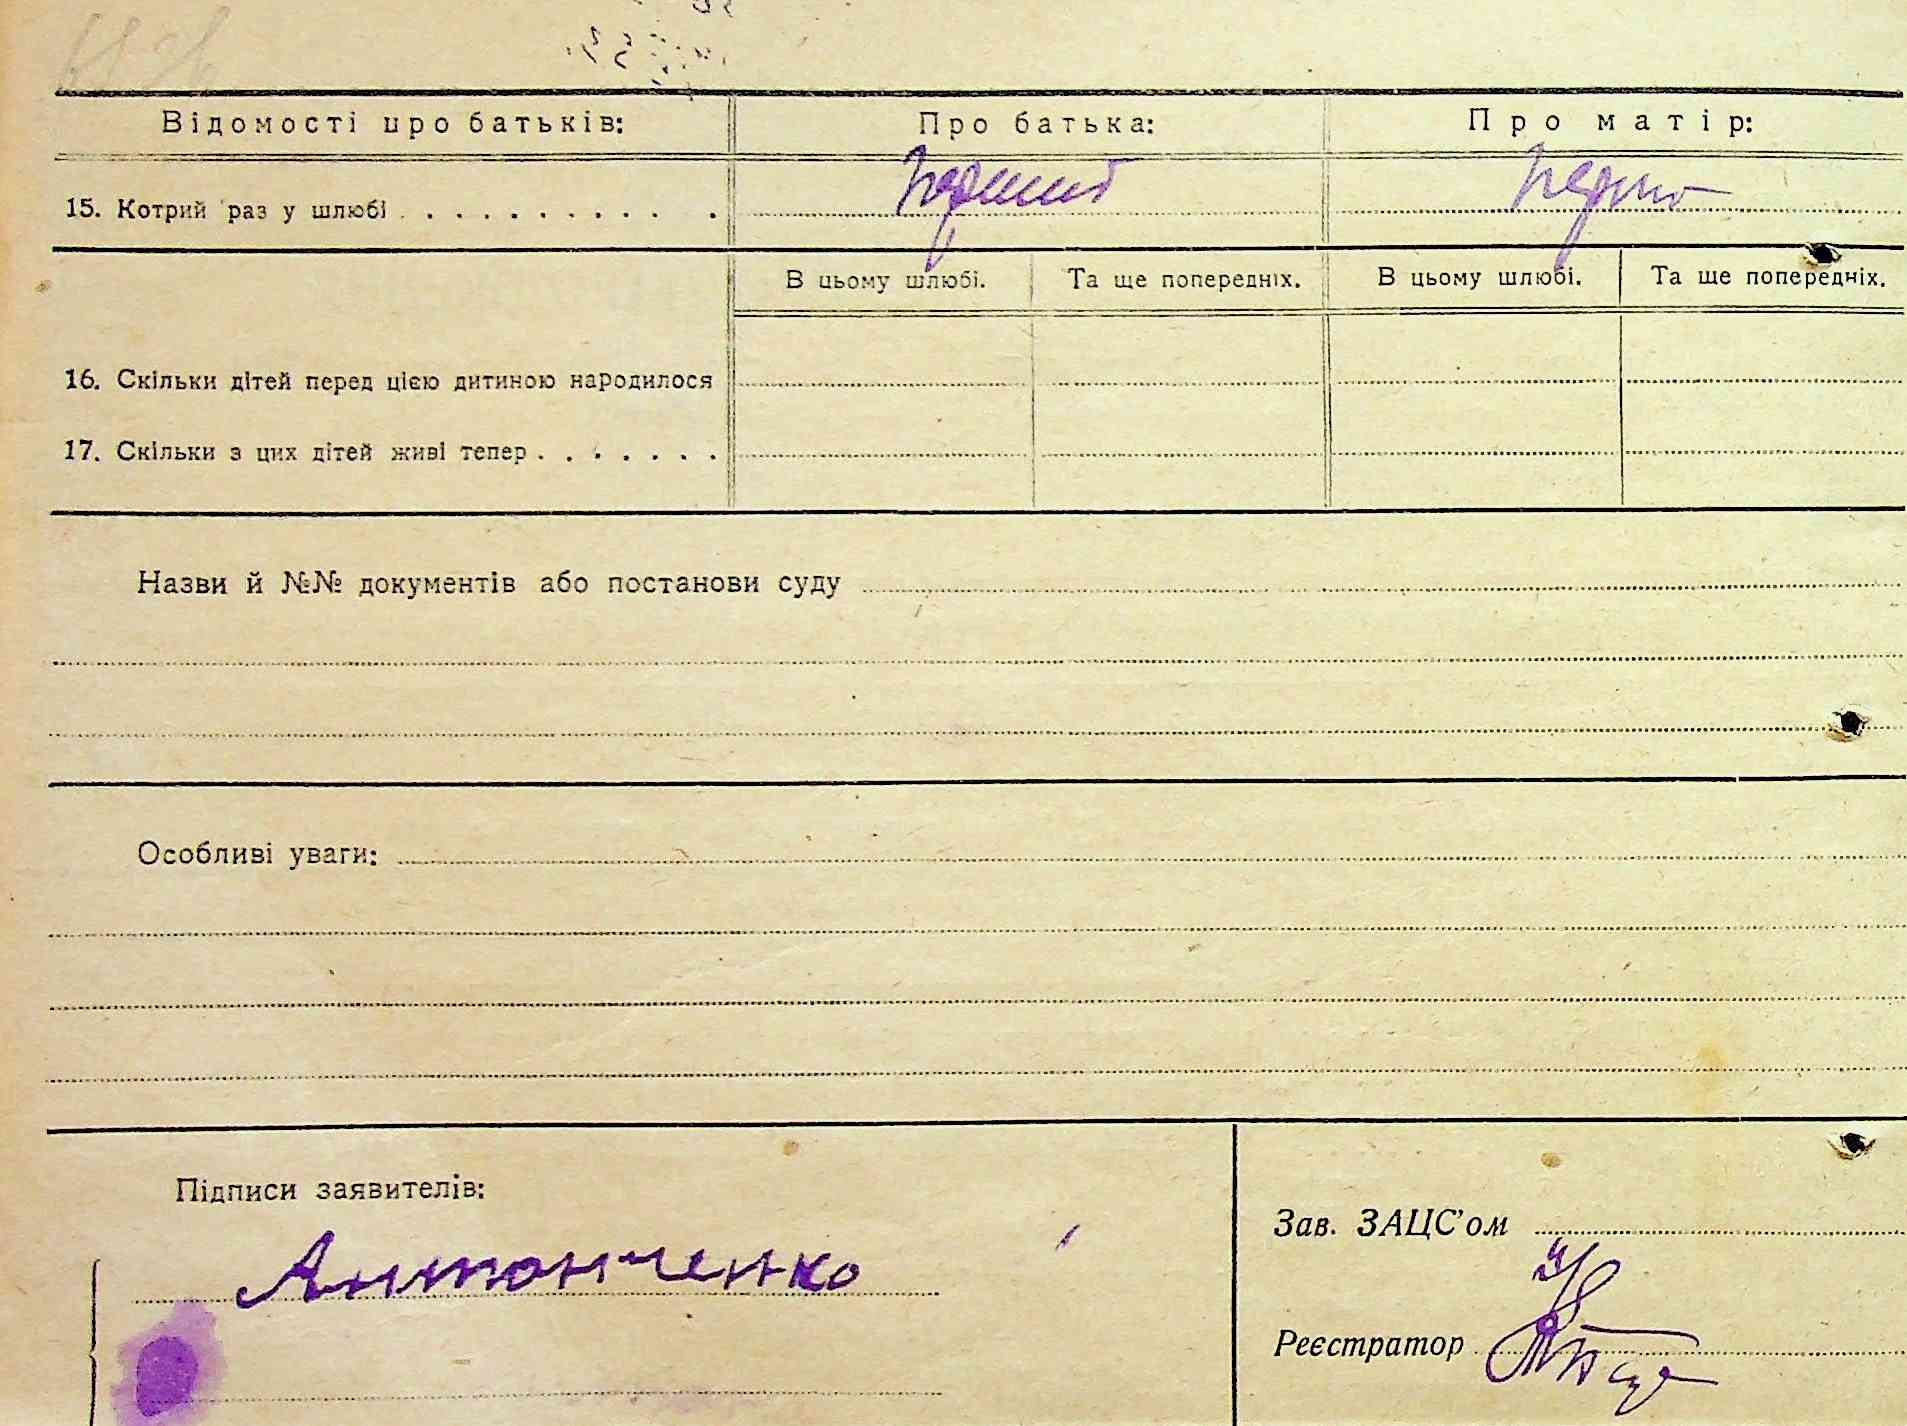 Відомості про батьків: Про батька: Про матір:
15. Котрий раз у шлюбі . . . . . . . . . . . перший перш
В цьому шлюбі. Та ще попередніх. В цьому шлюбі. Та ще попередніх.
16. Скільки дітей перед цією дитиною народилося
17. Скільки з цих дітей живі тепер . . . . . . .
Назви й №№ документів або постанови суду
Особливі уваги:
Підписи заявителів:
Зав. ЗАЦС'ом
Антонченко
Реєстратор